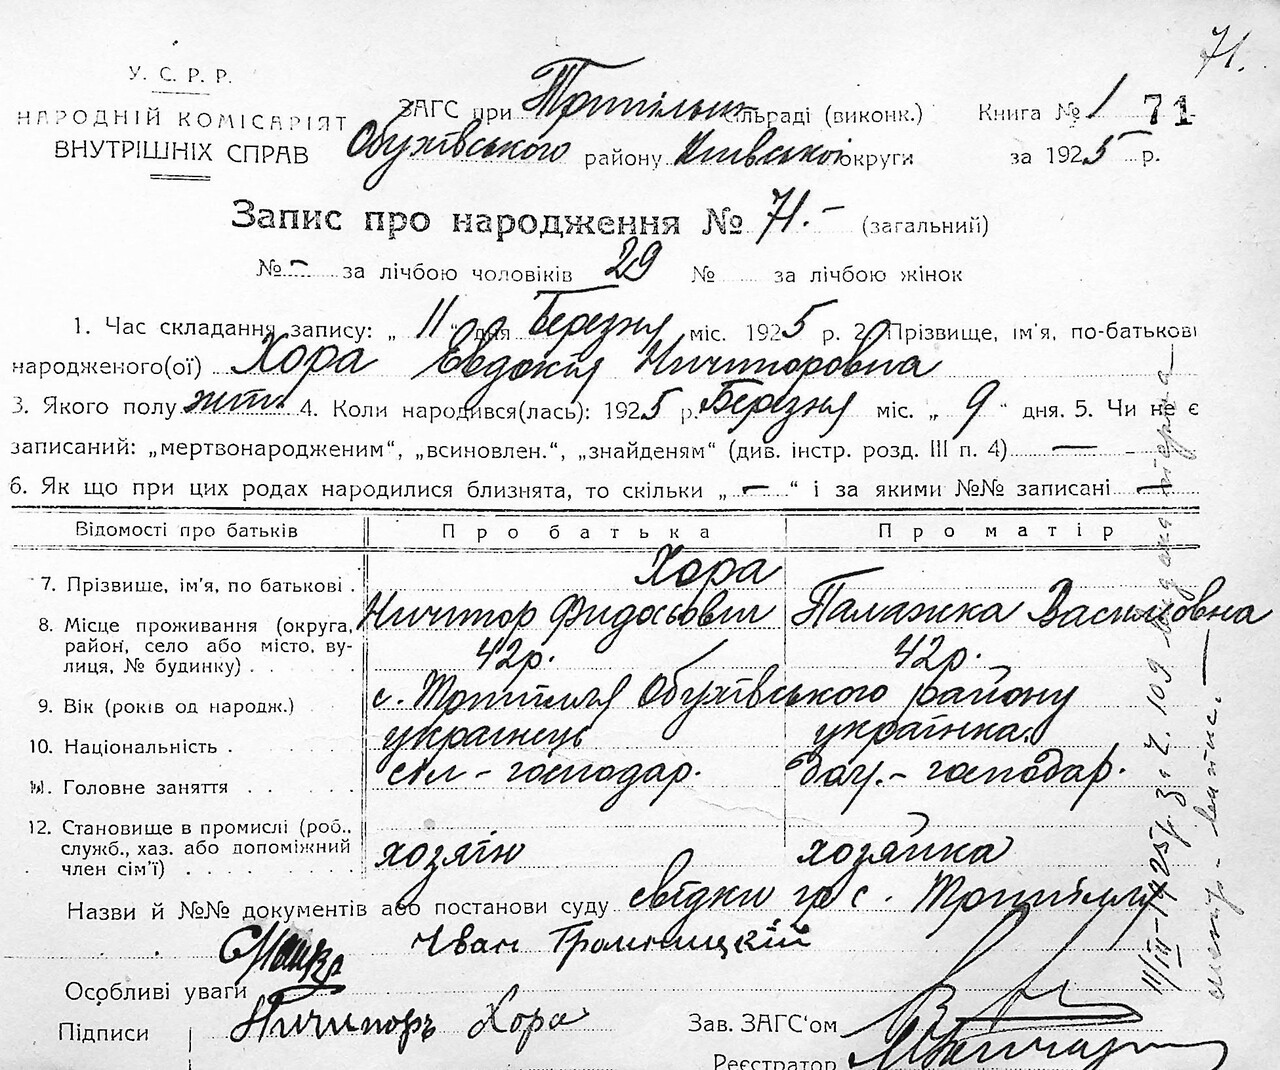 71.
У. С. Р. Р.
НАРОДНІЙ КОМІСАРІЯТ
ВНУТРІШНІХ СПРАВ
ЗАГС при Трипільськ. сільраді (виконк.)
Обухівського району Київської округи
Книга № 1 71
за 1925 р.
Запис про народження № 71.- (загальний)
№ - за лічбою чоловіків 29 № за лічбою жінок
1. Час складання запису: „ 11 “ дня Березня міс. 1925 р. 2. Прізвище, ім'я, по-батькові
народженого(ої) Хора Евдокія Ничипоровна
3. Якого полу жін. 4. Коли народився(лась): 1925 р. Березня міс. „ 9 “ дня. 5. Чи не є
записаний: „мертвонародженим“, „всиновлен.“, „знайденям“ (див. інстр. розд. III п. 4) —
6. Як що при цих родах народилися близнята, то скільки „ — “ і за якими №№ записані —
Відомості про батьків Про батька Про матір
7. Прізвище, ім'я, по батькові . Хора
Ничипор Фидосьович Палажка Василовна
8. Місце проживання (округа, район, село або місто, вулиця, № будинку) . .
42р. 42р.
9. Вік (років од народж.) с. Трипілля Обухівського району
10. Національність . українець українка.
11. Головне заняття . . . сіл - господар. дом. - господар.
12. Становище в промислі (роб.,
служб., хаз. або допоміжний
член сім'ї) . . . . . хозяїн хозяйка
Назви й №№ документів або постанови суду свідки гр с. Трипілля
Іван Тромницкій
Особливі уваги
Підписи Ничипоръ Хора
Зав. ЗАГС'ом
Реєстратор
11/III-1925р. за ч. 109 видана